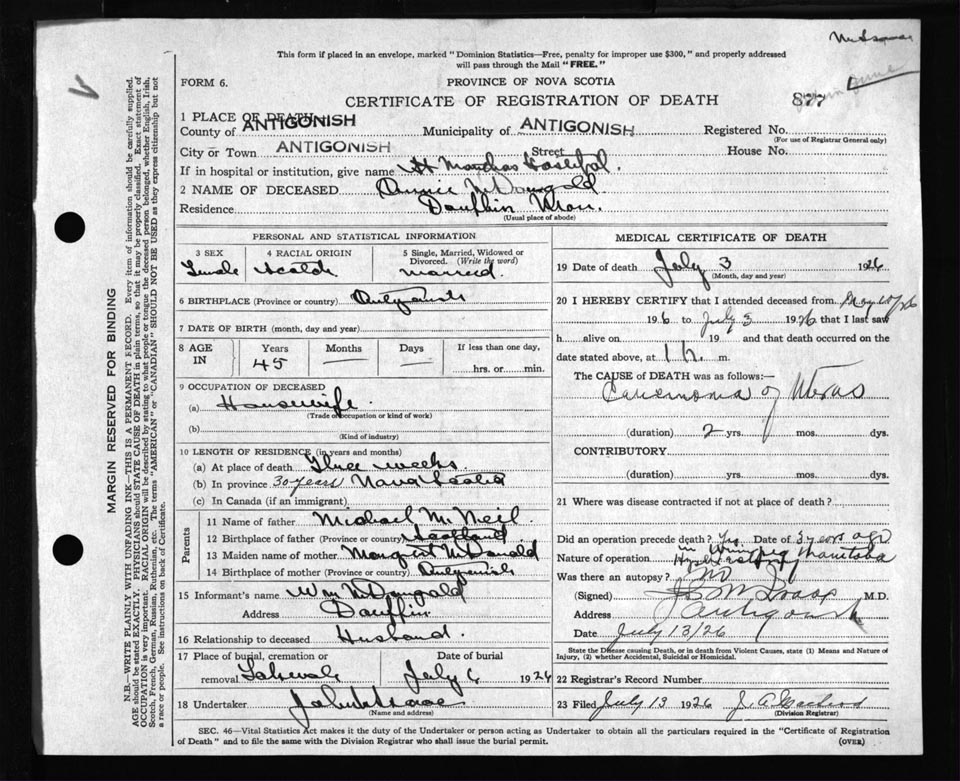 This form if placed in an envelope, marked "Dominion Statistics—Free, penalty for improper use $300," and properly addressed
will pass through the Mail "FREE."
FORM 6.
PROVINCE OF NOVA SCOTIA
CERTIFICATE OF REGISTRATION OF DEATH
877
1 PLACE OF DEATH
County of ANTIGONISH Municipality of ANTIGONISH Registered No.
(For use of Registrar General only)
City or Town ANTIGONISH Street House No.
If in hospital or institution, give name St Marthas Hospital.
2 NAME OF DECEASED Annie McDougald
Residence Dauphin Man.
(Usual place of abode)
PERSONAL AND STATISTICAL INFORMATION
3 SEX 4 RACIAL ORIGIN 5 Single, Married, Widowed or
Divorced. (Write the word)
Female Scotch married.
6 BIRTHPLACE (Province or country) Antigonish
7 DATE OF BIRTH (month, day and year)
8 AGE IN Years Months Days If less than one day,
45 — — hrs. or min.
9 OCCUPATION OF DECEASED
(a) Housewife.
(Trade occupation or kind of work)
(b)
(Kind of industry)
10 LENGTH OF RESIDENCE (in years and months)
(a) At place of death Three weeks
(b) In province 30 years Nova Scotia
(c) In Canada (if an immigrant)
Parents
11 Name of father Michael McNeil
12 Birthplace of father (Province or country) Scotland
13 Maiden name of mother Margaret McDonald
14 Birthplace of mother (Province or country) Antigonish
15 Informant's name Wm McDougald
Address Dauphin
16 Relationship to deceased Husband.
17 Place of burial, cremation or Date of burial
removal Lakevale July 6 1926
18 Undertaker
(Name and address)
MEDICAL CERTIFICATE OF DEATH
19 Date of death July 3 1926
(Month, day and year)
20 I HEREBY CERTIFY that I attended deceased from May 10/26
1926 to July 3 1926 that I last saw
h alive on 19 and that death occurred on the
date stated above, at 1 h. m.
The CAUSE of DEATH was as follows:—
Carcinoma of Uterus
(duration) 2 yrs. mos. dys.
CONTRIBUTORY
(duration) yrs. mos. dys.
21 Where was disease contracted if not at place of death?
Did an operation precede death? Yes Date of 3 years ago
in Winnipeg Manitoba
Nature of operation Hysterectomy
Was there an autopsy? No
(Signed) M.D.
Address Antigonish
Date July 13/26
State the Disease causing Death, or in death from Violent Causes, state (1) Means and Nature of
Injury, (2) whether Accidental, Suicidal or Homicidal.
22 Registrar's Record Number
23 Filed July 13 1926
(Division Registrar)
SEC. 46—Vital Statistics Act makes it the duty of the Undertaker or person acting as Undertaker to obtain all the particulars required in the "Certificate of Registration
of Death" and to file the same with the Division Registrar who shall issue the burial permit. (OVER)
MARGIN RESERVED FOR BINDING
N.B.—WRITE PLAINLY WITH UNFADING INK—THIS IS A PERMANENT RECORD. Every item of information should be carefully supplied.
AGE should be stated EXACTLY. PHYSICIANS should STATE CAUSE OF DEATH in plain terms, so that it may be properly classified. Exact statement of
OCCUPATION is very important. RACIAL ORIGIN will be described by stating to what people or tongue the deceased person belonged, whether English, Irish,
Scotch, French, German, Russian, Ruthenian, etc. The terms "AMERICAN" or "CANADIAN" SHOULD NOT BE USED as they express citizenship but not
a race or people. See instructions on back of Certificate.